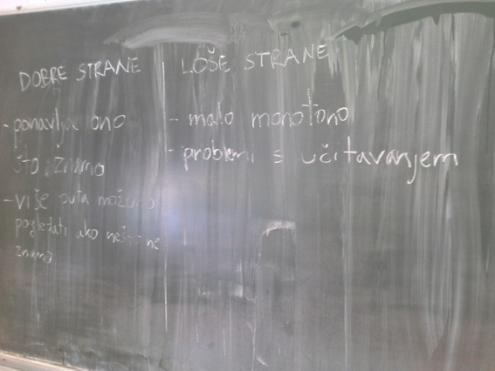 DOBRE STRANE
- ponavljamo ono
što znamo
- više puta možemo
pogledati ako nešto ne
znamo
LOŠE STRANE
- malo monotono
- problemi s učitavanjem